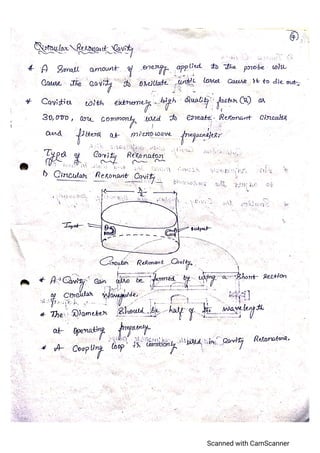 Circular Resonant Cavity
* A Small amount of energy applied to the probe will
Cause the Cavity to oscillate until losses Cause it to die out.
* Cavities with extremely high Quality factor (Q) or
30,000, are commonly used to create Resonant Circuits
and filters at microwave frequencies
Type of Cavity Resonator
1) Circular Resonant Cavity
Input
output
Circular Resonant Cavity
* A Cavity can also be formed by using a Short Section
of Circular Waveguide.
* The Diameter Should be half of the wavelength
at operating frequency
* A Coupling loop is commonly used in Cavity Resonators.
Scanned with CamScanner